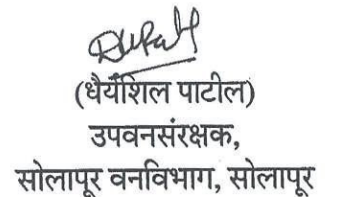 (धैर्यशिल पाटील)
उपवनसंरक्षक,
सोलापूर वनविभाग, सोलापूर